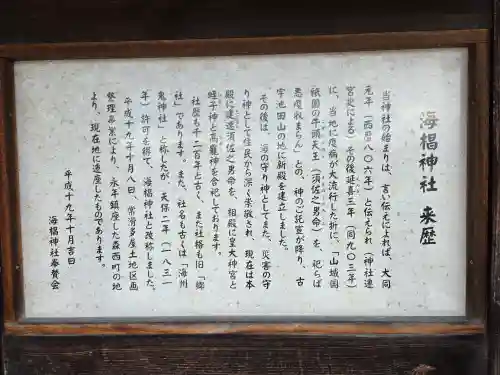 海椙神社 来歴
当神社の始まりは、言い伝えによれば、大同
元年(西暦八〇六年)と伝えられ(神社連
宮史による)その後延喜三年(同九〇三年)
に、当地に疫病が大流行した折に、「山城国
祇園の牛頭天王(須佐之男命)を、祀らば
悪疫収まらん」との、神のご託宣が降り、古
宇池田山の地に新殿を建立しました。
その後は、海の守り神としてまた、災害の守
り神として住民から深く崇敬され、現在は本
殿に建速須佐之男命を、相殿に皇大神宮と
蛭子神と高龗神を合祀しております。
社歴も千二百年と古く、また社格も旧「郷
社」であります。また、社名も古くは「海州
鬼神社」と称したが、天保二年(一八三一
年)許可を得て、海椙神社と改称しました。
平成十九年十月八日、常滑多屋土地区画
整理事業により、永年鎮座した森西町の地
より、現在地に遷座したものであります。
平成十九年十月吉日
海椙神社奉賛会